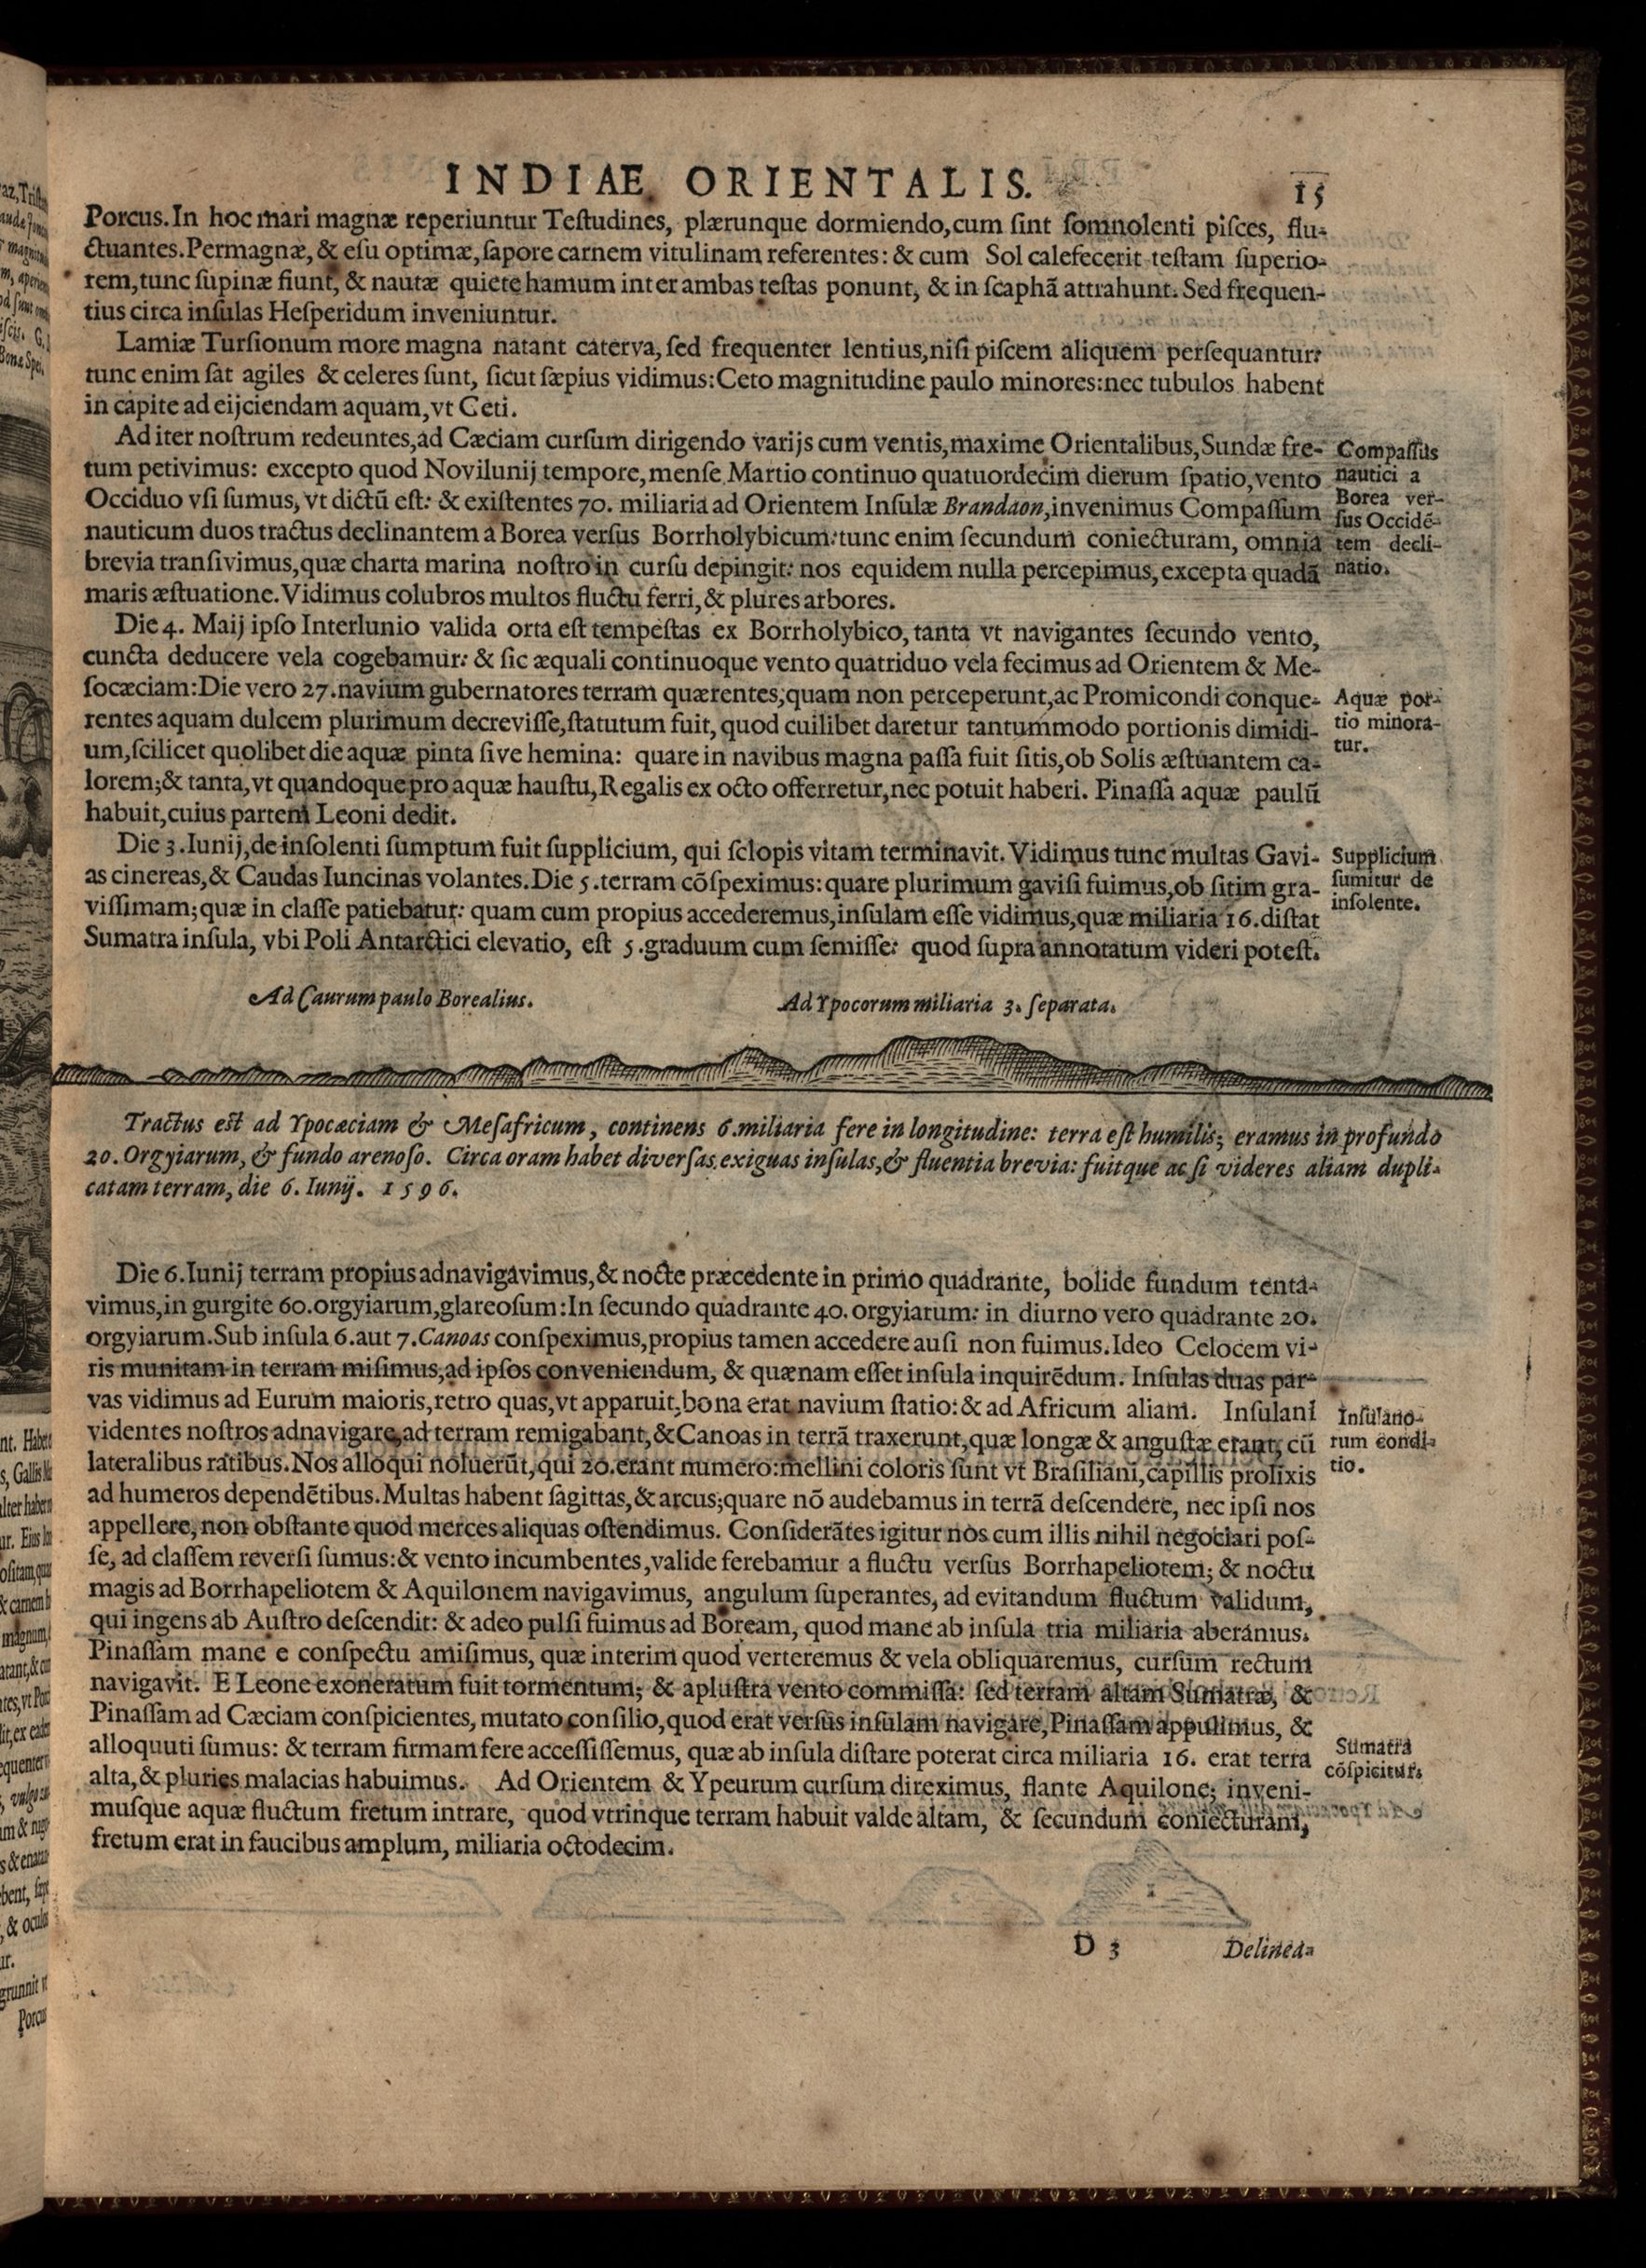 INDIAE ORIENTALIS. 15
Porcus. In hoc mari magnæ reperiuntur Teſtudines, plærunque dormiendo, cum ſint ſomnolenti piſces, flu-
ctuantes. Permagnæ, & eſu optimæ, ſapore carnem vitulinam referentes: & cum Sol calefecerit teſtam ſuperio-
rem, tunc ſupinæ fiunt, & nautæ quiete hamum inter ambas teſtas ponunt, & in ſcaphã attrahunt. Sed frequen-
tius circa inſulas Heſperidum inveniuntur.
Lamiæ Turſionum more magna natant caterva, ſed frequenter lentius, niſi piſcem aliquem perſequantur:
tunc enim ſat agiles & celeres ſunt, ſicut ſæpius vidimus: Ceto magnitudine paulo minores: nec tubulos habent
in capite ad eijciendam aquam, vt Ceti.
Ad iter noſtrum redeuntes, ad Cæciam curſum dirigendo varijs cum ventis, maxime Orientalibus, Sundæ fre-
tum petivimus: excepto quod Novilunij tempore, menſe Martio continuo quatuordecim dierum ſpatio, vento
Occiduo vſi ſumus, vt dictũ eſt: & exiſtentes 70. miliaria ad Orientem Inſulæ Brandaon, invenimus Compaſſum
nauticum duos tractus declinantem a Borea verſus Borrholybicum: tunc enim ſecundum coniecturam, omnia
brevia tranſivimus, quæ charta marina noſtro in curſu depingit: nos equidem nulla percepimus, excepta quadã
maris æſtuatione. Vidimus colubros multos fluctu ferri, & plures arbores.
Compaſſus
nautici a
Borea ver-
ſus Occidẽ-
tem decli-
natio.
Die 4. Maij ipſo Interlunio valida orta eſt tempeſtas ex Borrholybico, tanta vt navigantes ſecundo vento,
cuncta deducere vela cogebamur: & ſic æquali continuoque vento quatriduo vela fecimus ad Orientem & Me-
ſocæciam: Die vero 27. navium gubernatores terram quærentes, quam non perceperunt, ac Promicondi conque-
rentes aquam dulcem plurimum decreviſſe, ſtatutum fuit, quod cuilibet daretur tantummodo portionis dimidi-
um, ſcilicet quolibet die aquæ pinta ſive hemina: quare in navibus magna paſſa fuit ſitis, ob Solis æſtuantem ca-
lorem; & tanta, vt quandoque pro aquæ hauſtu, Regalis ex octo offerretur, nec potuit haberi. Pinaſſa aquæ paulũ
habuit, cuius partem Leoni dedit.
Aquæ por-
tio minora-
tur.
Die 3. Iunij, de inſolenti ſumptum fuit ſupplicium, qui ſclopis vitam terminavit. Vidimus tunc multas Gavi-
as cinereas, & Caudas Iuncinas volantes. Die 5. terram cõſpeximus: quare plurimum gaviſi fuimus, ob ſitim gra-
viſſimam; quæ in claſſe patiebatur: quam cum propius accederemus, inſulam eſſe vidimus, quæ miliaria 16. diſtat
Sumatra inſula, vbi Poli Antarctici elevatio, eſt 5. graduum cum ſemiſſe: quod ſupra annotatum videri poteſt.
Supplicium
ſumitur de
inſolente.
Ad Caurum paulo Borealius. Ad Ypocorum miliaria 3. ſeparata.
Tractus eſt ad Ypocæciam & Meſafricum, continens 6. miliaria fere in longitudine: terra eſt humilis; eramus in profundo
20. Orgyiarum, & fundo arenoſo. Circa oram habet diverſas exiguas inſulas, & fluentia brevia: fuitque ac ſi videres aliam dupli-
catam terram, die 6. Iunij. 1596.
Die 6. Iunij terram propius adnavigavimus, & nocte præcedente in primo quadrante, bolide fundum tenta-
vimus, in gurgite 60. orgyiarum, glareoſum: In ſecundo quadrante 40. orgyiarum: in diurno vero quadrante 20.
orgyiarum. Sub inſula 6. aut 7. Canoas conſpeximus, propius tamen accedere auſi non fuimus. Ideo Celocem vi-
ris munitam in terram miſimus, ad ipſos conveniendum, & quænam eſſet inſula inquirẽdum. Inſulas duas par-
vas vidimus ad Eurum maioris, retro quas, vt apparuit, bona erat navium ſtatio: & ad Africum aliam. Inſulani
videntes noſtros adnavigare, ad terram remigabant, & Canoas in terrã traxerunt, quæ longæ & anguſtæ erant, cũ
lateralibus ratibus. Nos alloqui noluerũt, qui 20. erant numero: mellini coloris ſunt vt Braſiliani, capillis prolixis
ad humeros dependẽtibus. Multas habent ſagittas, & arcus; quare nõ audebamus in terrã deſcendere, nec ipſi nos
appellere, non obſtante quod merces aliquas oſtendimus. Conſiderãtes igitur nos cum illis nihil negociari poſ-
ſe, ad claſſem reverſi ſumus: & vento incumbentes, valide ferebamur a fluctu verſus Borrhapeliotem; & noctu
magis ad Borrhapeliotem & Aquilonem navigavimus, angulum ſuperantes, ad evitandum fluctum validum,
qui ingens ab Auſtro deſcendit: & adeo pulſi fuimus ad Boream, quod mane ab inſula tria miliaria aberamus.
Pinaſſam mane e conſpectu amiſimus, quæ interim quod verteremus & vela obliquaremus, curſum rectum
navigavit. E Leone exoneratum fuit tormentum; & apluſtra vento commiſſa: ſed terram altam Sumatræ, &
Pinaſſam ad Cæciam conſpicientes, mutato conſilio, quod erat verſus inſulam navigare, Pinaſſam appulimus, &
alloquuti ſumus: & terram firmam fere acceſſiſſemus, quæ ab inſula diſtare poterat circa miliaria 16. erat terra
alta, & pluries malacias habuimus. Ad Orientem & Ypeurum curſum direximus, flante Aquilone; inveni-
muſque aquæ fluctum fretum intrare, quod vtrinque terram habuit valde altam, & ſecundum coniecturam,
fretum erat in faucibus amplum, miliaria octodecim.
Inſulano-
rum condi-
tio.
Sumatra
cõſpicitur.
D 3 Delinea-